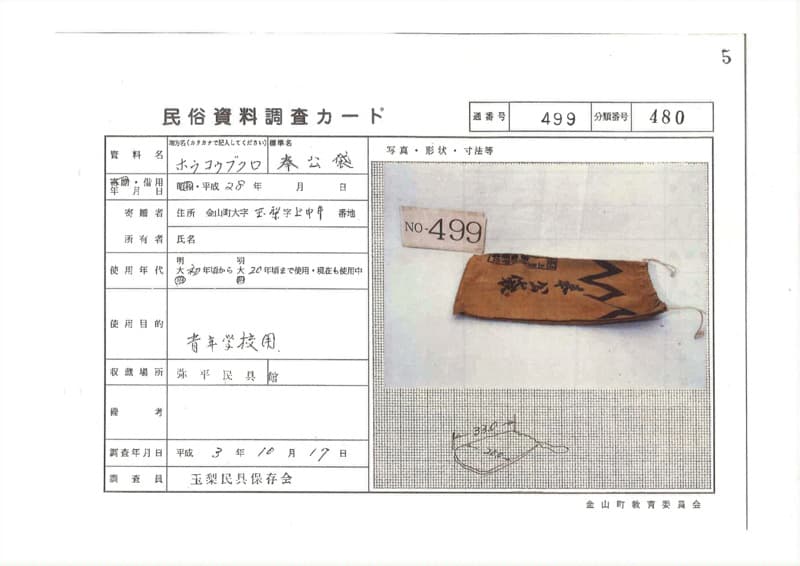 5
民俗資料調査カード
通番号 499 分類番号 480
資料名
地方名(カタカナで記入してください)
ホウコウブクロ
標準名
奉公袋
写真・形状・寸法等
寄贈・借用
年月日
昭和・平成 28 年 月 日
寄贈者
住所 金山町大字 玉梨字上中井 番地
所有者
氏名
使用年代
明 大 昭 初年頃から 明 大 昭 20年頃まで使用・現在も使用中
使用目的
青年学校用
収蔵場所
弥平民具館
備考
調査年月日
平成 3 年 10 月 17 日
調査員
玉梨民具保存会
NO-499
奉公袋
33.0
20.0
金山町教育委員会